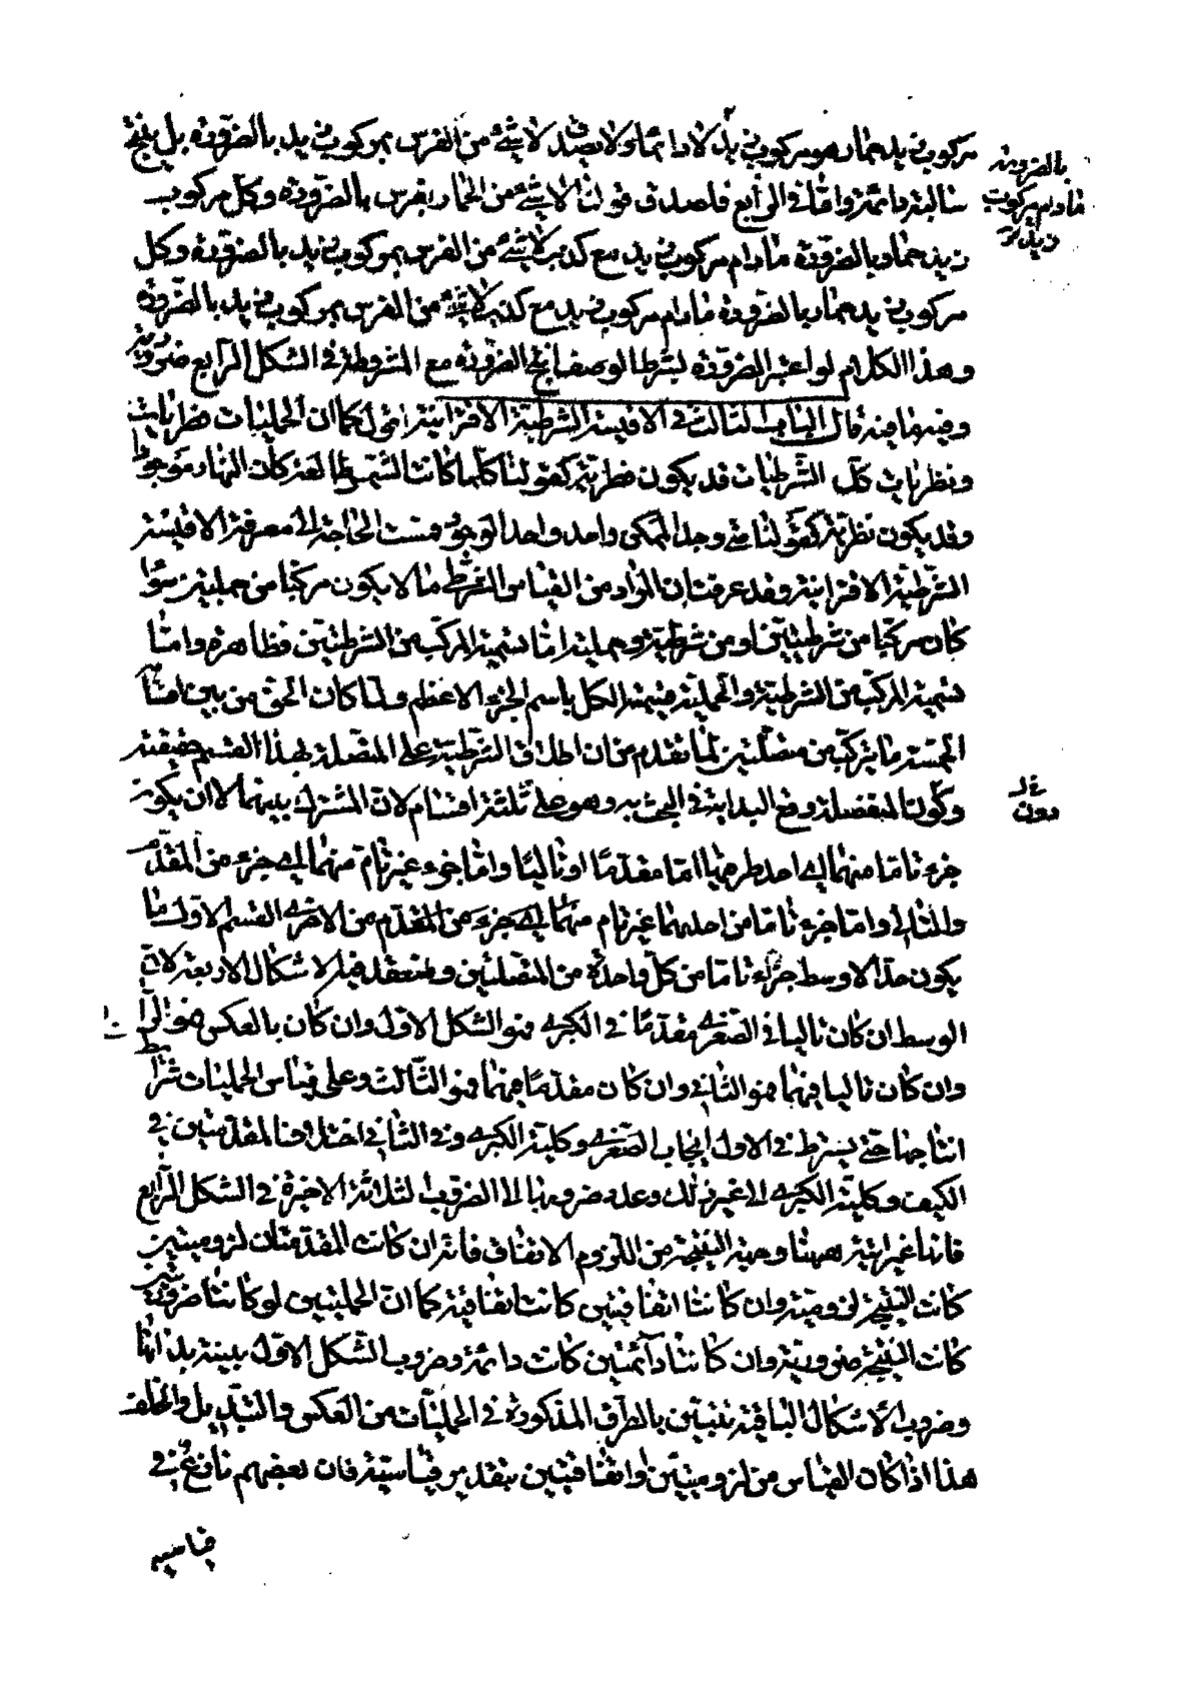 مركوب زيد حمار هو مركوب زيد لا دائما ولا يصدق لا شئ من الفرس بمركوب زيد بالضرورة بل ينتج
سالبة دائمة واما في الرابع فلصدق قولنا لا شئ من الحمار بفرس بالضرورة وكل مركوب
زيد حمار بالضرورة ما دام مركوب زيد مع كذب لا شئ من الفرس بمركوب زيد بالضرورة وكل
مركوب زيد حمار بالضرورة ما دام مركوب زيد مع كذب لا شئ من الفرس بمركوب زيد بالضرورة
وهذا الكلام لو اعتبر الضرورة بشرط الوصف انتج الضرورة مع المشروطة في الشكل الرابع ضرورية
وفيه ما فيه قال الباب الثالث في الاقيسة الشرطية الاقترانية اقول كما ان الحمليات فطريات
ونظريات كك الشرطيات قد يكون فطرية كقولنا كلما كانت الشمس طالعة كان النهار موجودا
وقد يكون نظرية كقولنا متى وجد الممكن وجد واجب الوجود فمست الحاجة الى معرفة الاقيسة
الشرطية الاقترانية وقد عرفت ان المراد من القياس الشرطى ما لا يكون مركبا من حمليتين سواء
كان مركبا من شرطيتين او من شرطية وحملية اما تسمية المركب من الشرطيتين فظاهرة واما
تسمية المركب من الشرطية والحملية فتسمية الكل باسم الجزء الاعظم ولما كان الحق من بين اقسامه
الخمسة ما يتركب من متصلتين لما تقدم من ان اطلاق الشرطية على المتصلة بهذا القسم حقيقة
دون المنفصلة وقع البداية في البحث به وهو على ثلثة اقسام لان المشترك بينهما لا ان يكون
جزء تاما منهما اى احد طرفيها اما مقدما او تاليا واما جزء غير تام منهما اى جزء من المقدم
والتالى واما جزء تاما من احدهما غير تام منهما اى جزء من المقدم من الاخرى القسم الاول ما
يكون حد الاوسط جزء تاما من كل واحدة من المتصلتين وينعقد فيه الاشكال الاربعة لان
الوسط ان كان تاليا في الصغرى مقدما في الكبرى فهو الشكل الاول وان كان بالعكس فهو الرابع
وان كان تاليا فيهما فهو الثاني وان كان مقدما فيهما فهو الثالث وعلى قياس الحمليات شرائط
انتاجها حتى يشترط في الاول ايجاب الصغرى وكلية الكبرى وفي الثاني اختلاف المقدمتين في
الكيف وكلية الكبرى الى غير ذلك وعدد ضروبها الا الضروب الثلاثة الاخيرة في الشكل الرابع
فانها غير اتية ههنا وجهة النتيجة من اللزوم الاتفاق فانه ان كانت المقدمتان لزوميتين
كانت النتيجة لزومية وان كانتا اتفاقيتين كانت اتفاقية كما ان الحمليتين لو كانتا ضروريتين
كانت النتيجة ضرورية وان كانتا دائمتين كانت دائمة وضروب الشكل الاول بينة بذاتها
وضروب الاشكال الباقية تتبين بالطرق المذكورة في الحمليات من العكس والتبديل والخلف
هذا اذا كان القياس من لزوميتين واتفاقيتين بتقدير قياسيته فان بعضهم نازع في
قياسية
بالضرورة
ما دام مركوب
زيد
دون